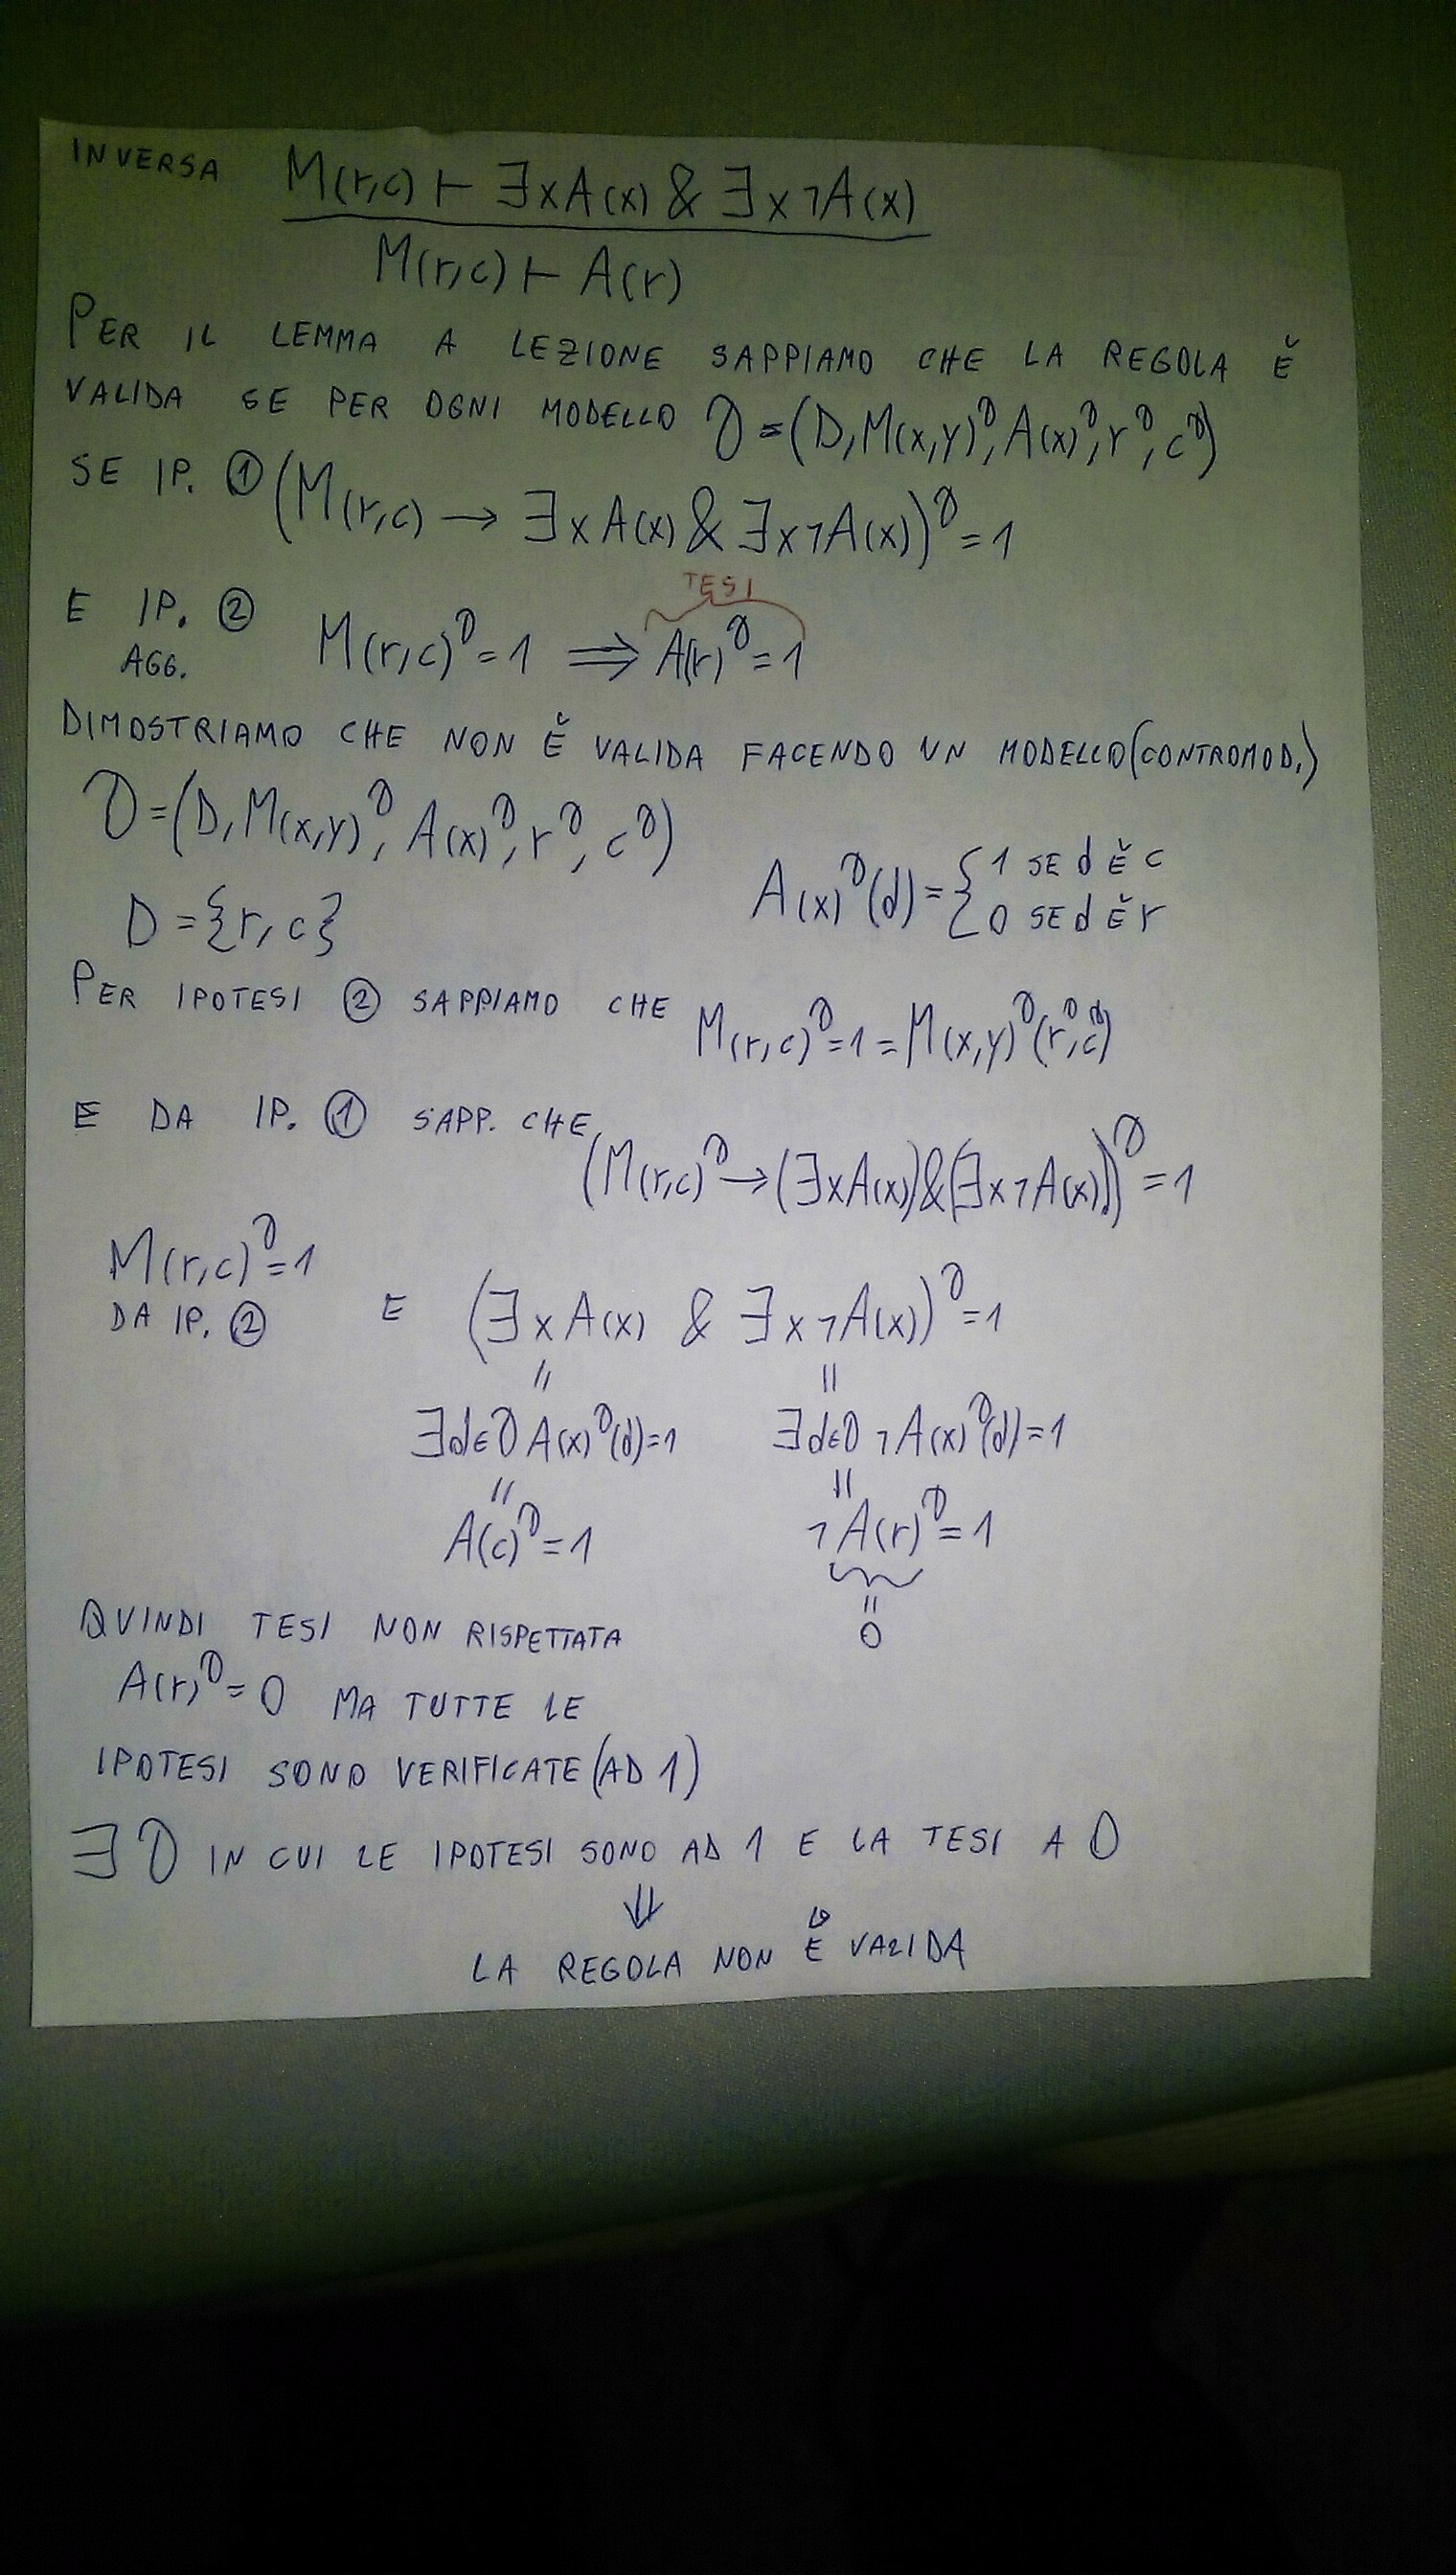 INVERSA M(r,c) ⊢ ∃xA(x) & ∃x¬A(x)
M(r,c) ⊢ A(r)
PER IL LEMMA A LEZIONE SAPPIAMO CHE LA REGOLA È
VALIDA SE PER OGNI MODELLO D=(D, M(x,y)^D, A(x)^D, r^D, c^D)
SE IP. ① (M(r,c) → ∃xA(x) & ∃x¬A(x))^D = 1
TESI
E IP. ② M(r,c)^D = 1 ⟹ A(r)^D = 1
AGG.
DIMOSTRIAMO CHE NON È VALIDA FACENDO UN MODELLO(CONTROMOD.)
D=(D, M(x,y)^D, A(x)^D, r^D, c^D)
D={r,c} A(x)^D(d)={1 SE d È c
0 SE d È r
PER IPOTESI ② SAPPIAMO CHE M(r,c)^D=1=M(x,y)^D(r^D,c^D)
E DA IP. ① SAPP. CHE
(M(r,c)^D→(∃xA(x))&(∃x¬A(x)))^D=1
M(r,c)^D=1
DA IP. ② E (∃xA(x) & ∃x¬A(x))^D=1
= =
∃d∈D A(x)^D(d)=1 ∃d∈D ¬A(x)^D(d)=1
= =
A(c)^D=1 ¬A(r)^D=1
=
0
QUINDI TESI NON RISPETTATA
A(r)^D=0 MA TUTTE LE
IPOTESI SONO VERIFICATE(AD 1)
∃D IN CUI LE IPOTESI SONO AD 1 E LA TESI A 0
⇓
LA REGOLA NON È VALIDA